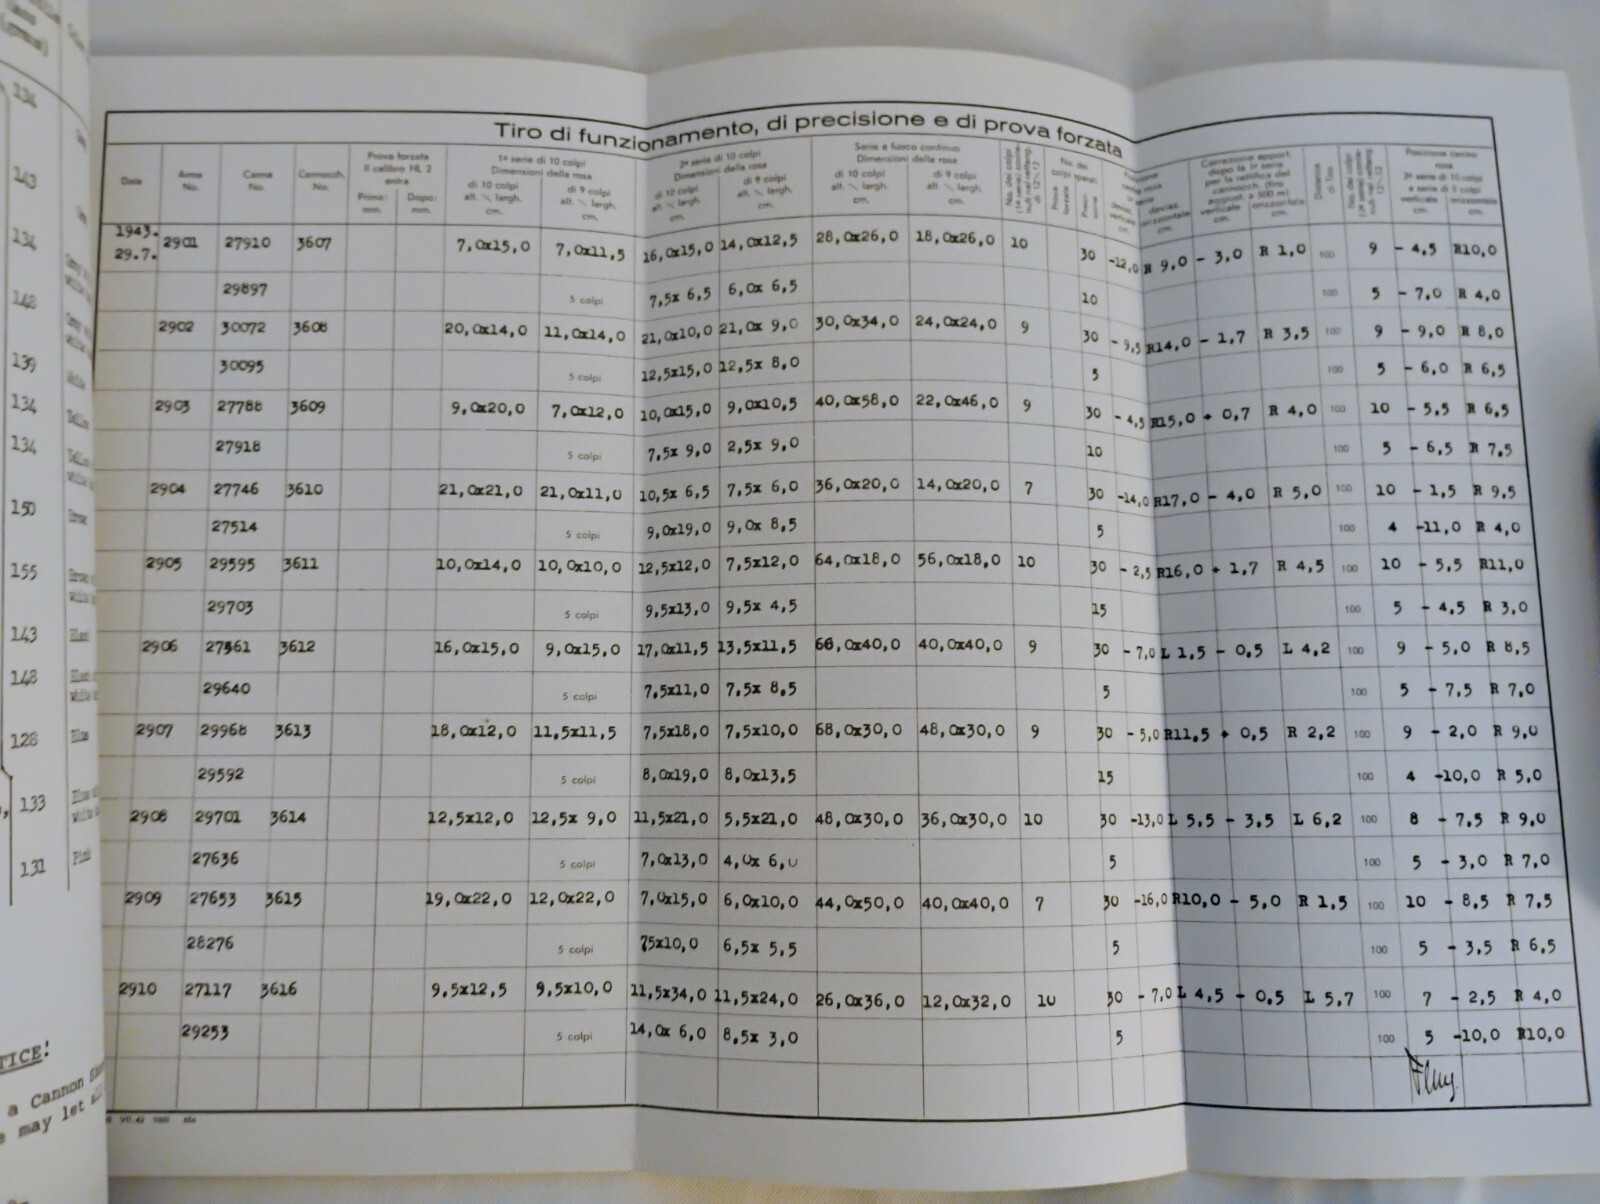 134
143
134
148
139
134
134
150
155
143
148
128
133
131
Pink
TICE!
a Cannon
may let
Tiro di funzionamento, di precisione e di prova forzata
Date
Arma No.
Canna No.
Cannocch. No.
Prova forzata
Il calibro HL 2
entra
Prima: mm.
Dopo: mm.
1ª serie di 10 colpi
Dimensioni della rosa
di 10 colpi
alt. × largh.
cm.
di 9 colpi
alt. × largh.
cm.
2ª serie di 10 colpi
Dimensioni della rosa
di 10 colpi
alt. × largh.
cm.
di 9 colpi
alt. × largh.
cm.
Serie a fuoco continuo
Dimensioni della rosa
di 10 colpi
alt. × largh.
cm.
di 9 colpi
alt. × largh.
cm.
1943.
29.7. 2901 27910 3607 7,0x15,0 7,0x11,5 16,0x15,0 14,0x12,5 28,0x26,0 18,0x26,0 10 30 -12,0 R 9,0 - 3,0 R 1,0 100 9 - 4,5 R10,0
29897 5 colpi 7,5x 6,5 6,0x 6,5 10 100 5 - 7,0 R 4,0
2902 30072 3608 20,0x14,0 11,0x14,0 21,0x10,0 21,0x 9,0 30,0x34,0 24,0x24,0 9 30 - 9,5 R14,0 - 1,7 R 3,5 100 9 - 9,0 R 8,0
30095 5 colpi 12,5x15,0 12,5x 8,0 5 100 5 - 6,0 R 6,5
2903 27788 3609 9,0x20,0 7,0x12,0 10,0x15,0 9,0x10,5 40,0x58,0 22,0x46,0 9 30 - 4,5 R15,0 + 0,7 R 4,0 100 10 - 5,5 R 6,5
27918 5 colpi 7,5x 9,0 2,5x 9,0 10 100 5 - 6,5 R 7,5
2904 27746 3610 21,0x21,0 21,0x11,0 10,5x 6,5 7,5x 6,0 36,0x20,0 14,0x20,0 7 30 -14,0 R17,0 - 4,0 R 5,0 100 10 - 1,5 R 9,5
27514 5 colpi 9,0x19,0 9,0x 8,5 5 100 4 -11,0 R 4,0
2905 29595 3611 10,0x14,0 10,0x10,0 12,5x12,0 7,5x12,0 64,0x18,0 56,0x18,0 10 30 - 2,5 R16,0 + 1,7 R 4,5 100 10 - 5,5 R11,0
29703 5 colpi 9,5x13,0 9,5x 4,5 15 100 5 - 4,5 R 3,0
2906 27561 3612 16,0x15,0 9,0x15,0 17,0x11,5 13,5x11,5 66,0x40,0 40,0x40,0 9 30 - 7,0 L 1,5 - 0,5 L 4,2 100 9 - 5,0 R 8,5
29640 5 colpi 7,5x11,0 7,5x 8,5 5 100 5 - 7,5 R 7,0
2907 29968 3613 18,0x12,0 11,5x11,5 7,5x18,0 7,5x10,0 68,0x30,0 48,0x30,0 9 30 - 5,0 R11,5 + 0,5 R 2,2 100 9 - 2,0 R 9,0
29592 5 colpi 8,0x19,0 8,0x13,5 15 100 4 -10,0 R 5,0
2908 29701 3614 12,5x12,0 12,5x 9,0 11,5x21,0 5,5x21,0 48,0x30,0 36,0x30,0 10 30 -13,0 L 5,5 - 3,5 L 6,2 100 8 - 7,5 R 9,0
27636 5 colpi 7,0x13,0 4,0x 6,0 5 100 5 - 3,0 R 7,0
2909 27653 3615 19,0x22,0 12,0x22,0 7,0x15,0 6,0x10,0 44,0x50,0 40,0x40,0 7 30 -16,0 R10,0 - 5,0 R 1,5 100 10 - 8,5 R 7,5
28276 5 colpi 75x10,0 6,5x 5,5 5 100 5 - 3,5 R 6,5
2910 27117 3616 9,5x12,5 9,5x10,0 11,5x34,0 11,5x24,0 26,0x36,0 12,0x32,0 10 30 - 7,0 L 4,5 - 0,5 L 5,7 100 7 - 2,5 R 4,0
29253 5 colpi 14,0x 6,0 8,5x 3,0 5 100 5 -10,0 R10,0
VII. 42 1000